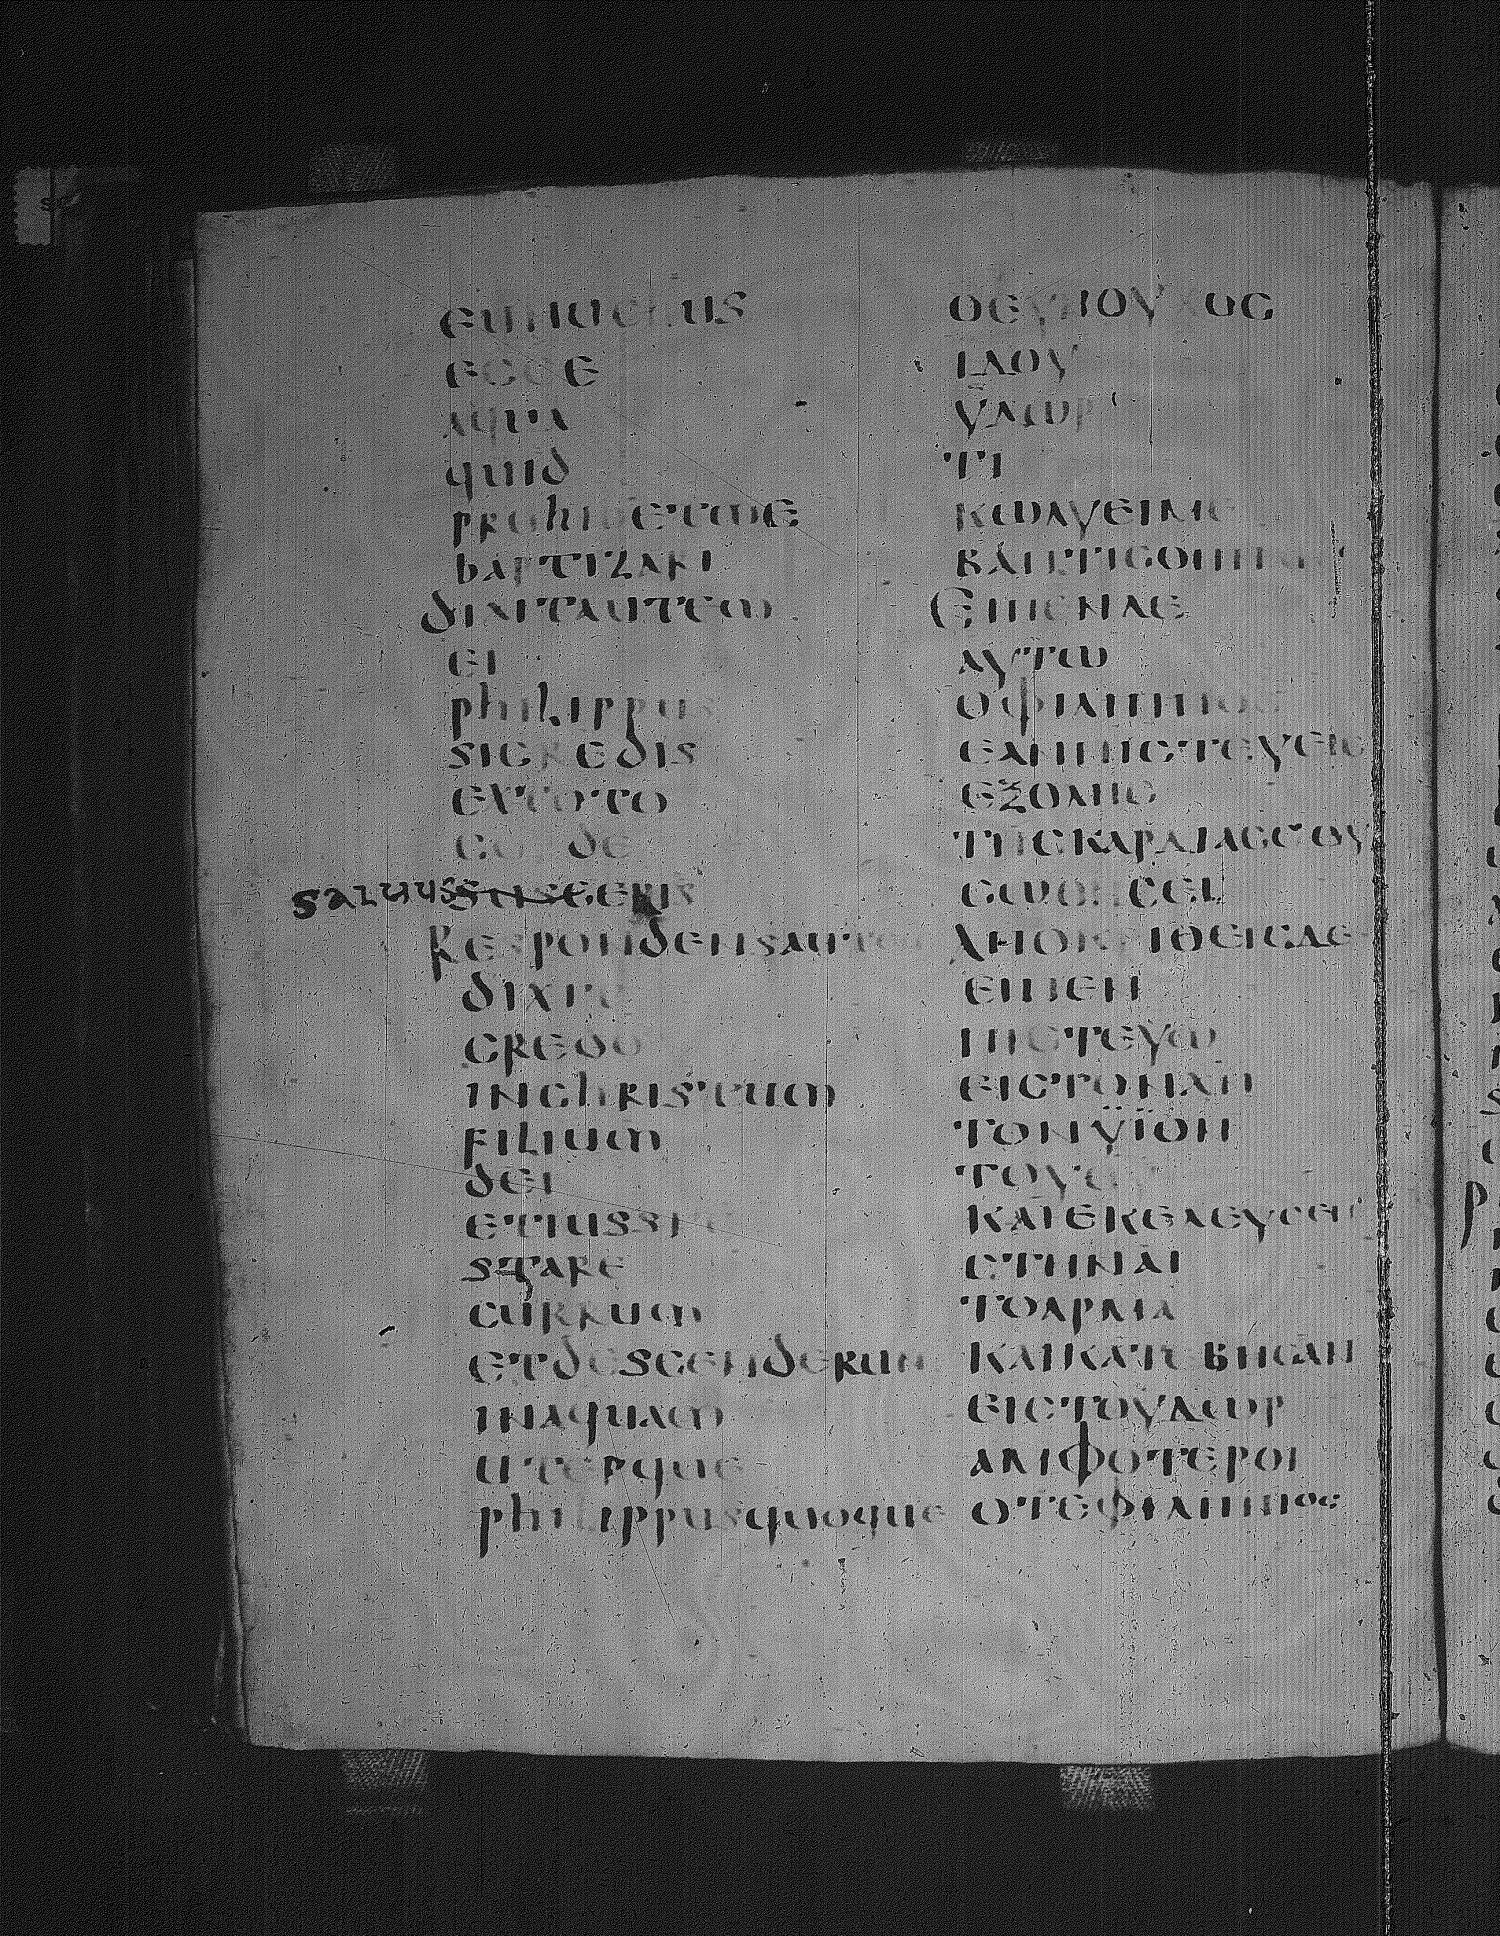 eunuchus
ecce
aqua
quid
prohibetme
baptizari
dixitautem
ei
philippus
sicredis
extoto
corde
saluus eris
respondensautem
dixit
credo
inchristum
filium
dei
etiussit
stare
currum
etdescenderun
inaquam
uterque
philippusquoque
ΟΕΥΝΟΥΧΟC
ΙΔΟΥ
ΫΔΩΡ
ΤΙ
ΚΩΛΥΕΙΜΕ
ΒΑΠΤΙCΘΗΝΑΙ
ΕΙΠΕΝΔΕ
ΑΥΤΩ
ΟΦΙΛΙΠΠΟC
ΕΑΝΠΙCΤΕΥΕΙC
ΕΞΟΛΗC
ΤΗCΚΑΡΔΙΑCCΟΥ
CΩΘΗCΕΙ
ΑΠΟΚΡΙΘΕΙCΔΕ
ΕΙΠΕΝ
ΠΙCΤΕΥΩ
ΕΙCΤΟΝΧΝ
ΤΟΝΫΪΟΝ
ΤΟΥΘΥ
ΚΑΙΕΚΕΛΕΥCΕΝ
CΤΗΝΑΙ
ΤΟΑΡΜΑ
ΚΑΙΚΑΤΕΒΗCΑΝ
ΕΙCΤΟΥΔΩΡ
ΑΜΦΟΤΕΡΟΙ
ΟΤΕΦΙΛΙΠΠΟC